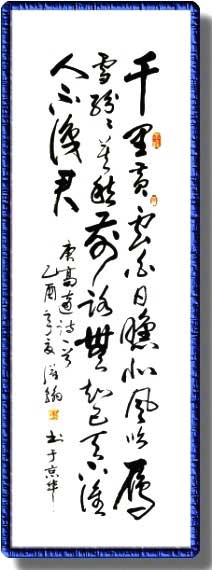 千里黄云白日曛北风吹雁
雪纷〻莫愁前路無知己天下谁
人不识君
唐高適诗一首
乙酉 书于京华